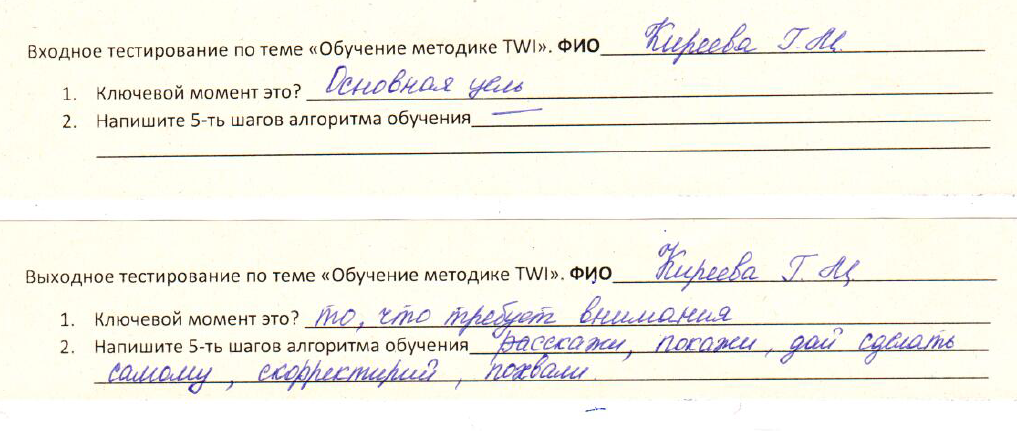 Входное тестирование по теме «Обучение методике TWI». ФИО Киреева Г.М.
1. Ключевой момент это? Основная цель
2. Напишите 5-ть шагов алгоритма обучения —
Выходное тестирование по теме «Обучение методике TWI». ФИО Киреева Г.М.
1. Ключевой момент это? то, что требует внимания
2. Напишите 5-ть шагов алгоритма обучения расскажи, покажи, дай сделать
самому, скорректирий, похвали